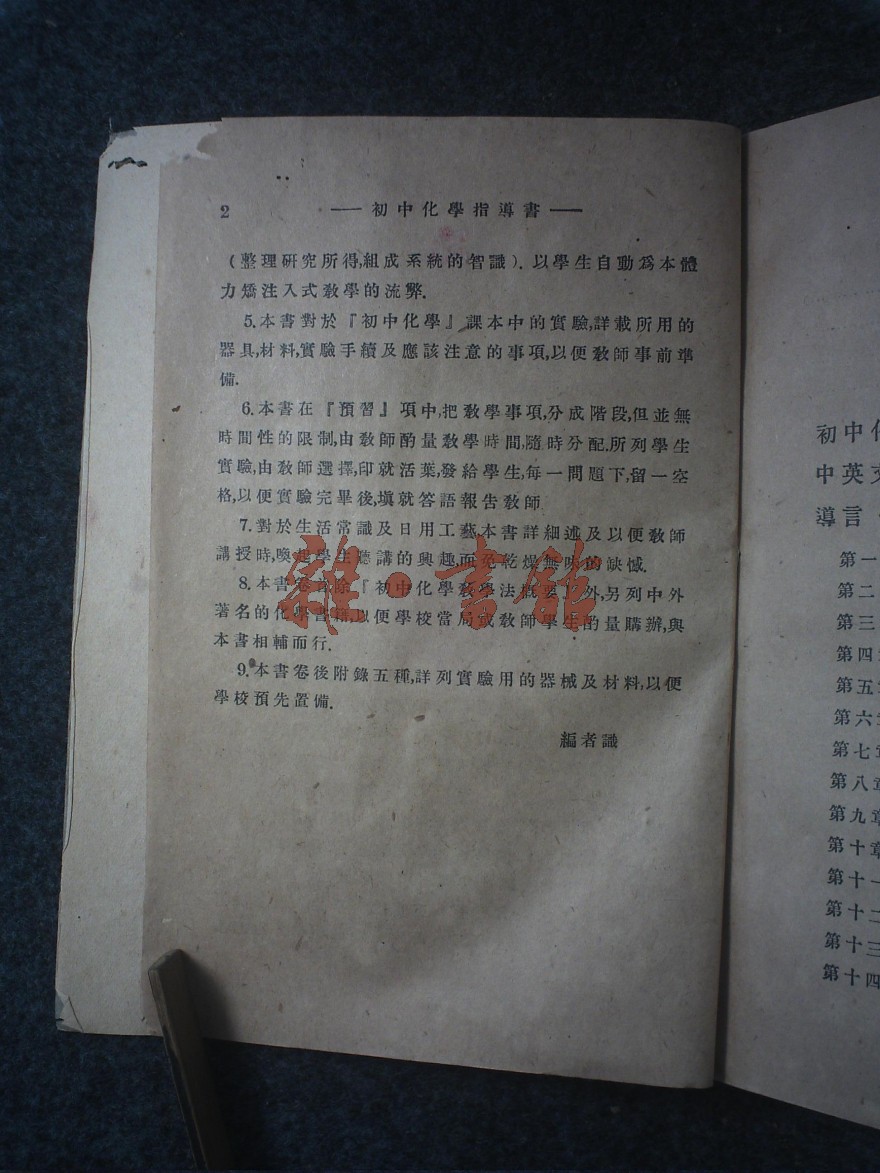 2 —— 初中化學指導書 ——
（整理研究所得,組成系統的智識）. 以學生自動爲本體
力矯注入式敎學的流弊.
5.本書對於『初中化學』課本中的實驗,詳載所用的
器具,材料,實驗手續及應該注意的事項,以便敎師事前準
備.
6.本書在『預習』項中,把敎學事項,分成階段,但並無
時間性的限制,由敎師酌量敎學時間,隨時分配,所列學生
實驗,由敎師選擇,印就活葉,發給學生,每一問題下,留一空
格,以便實驗完畢後,塡就答語報告敎師.
7.對於生活常識及日用工藝本書詳細述及以便敎師
講授時,喚起學生聽講的興趣,而免乾燥無味的缺憾.
8.本書卷首除『初中化學敎學法概要』外,另列中外
著名的化學書籍,以便學校當局或敎師學生酌量購辦,與
本書相輔而行.
9.本書卷後附錄五種,詳列實驗用的器械及材料,以便
學校預先置備.
編者識
雜·書館
初中化
中英文
導言
第一
第二
第三
第四章
第五章
第六章
第七章
第八章
第九章
第十章
第十一
第十二
第十三
第十四